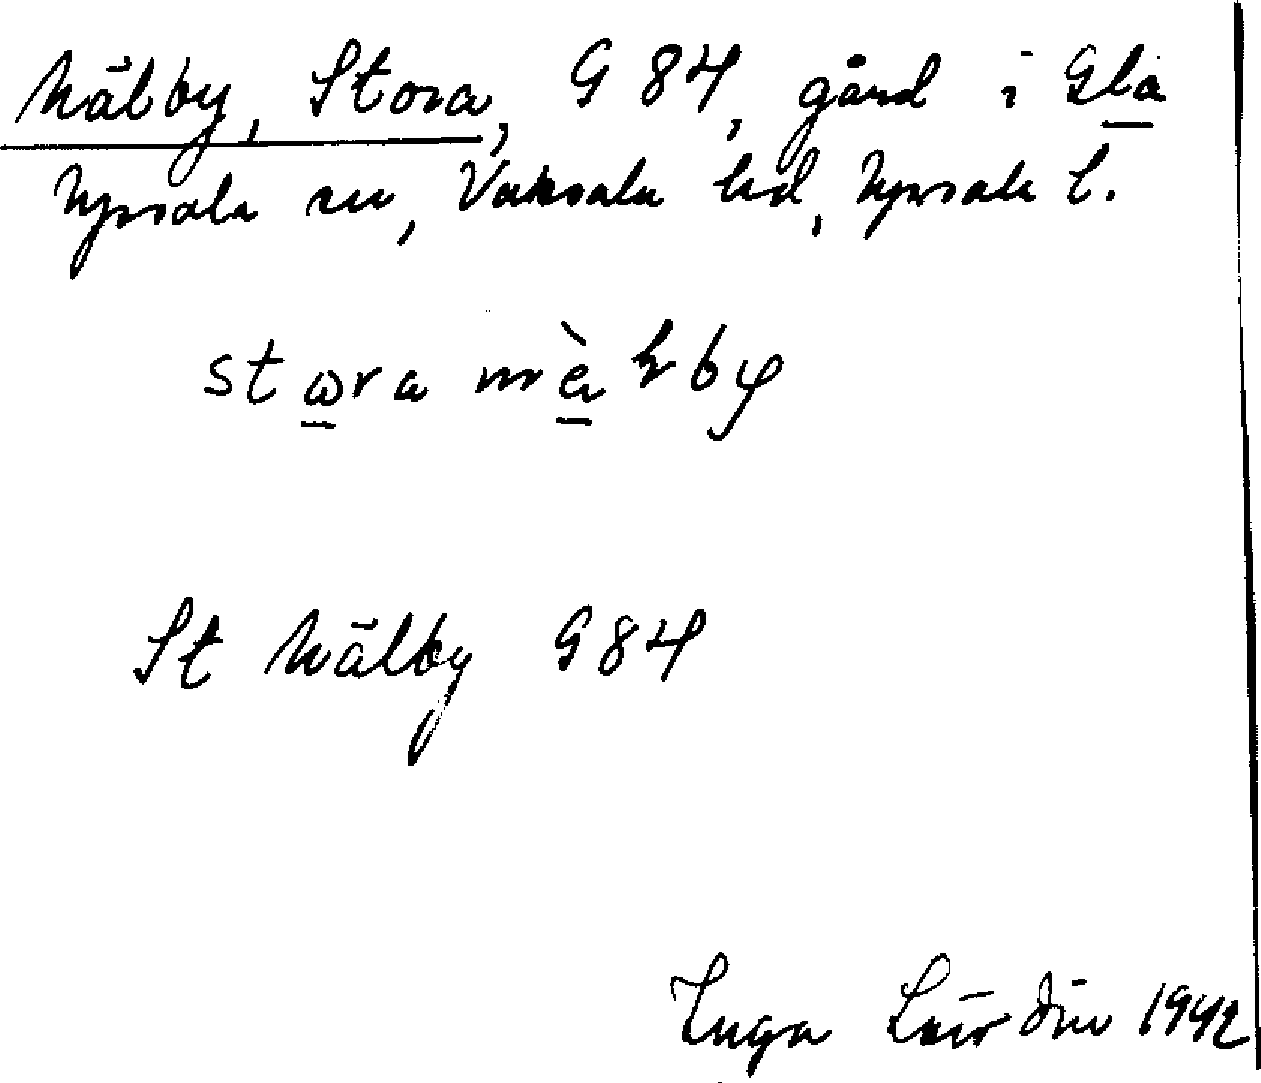 Mälby, Stora, G 84, gård i Gla
Upsala sn, Vaksala hd, Upsala l.
stωra mὲ by
St Mälby G 84
Inga 1942